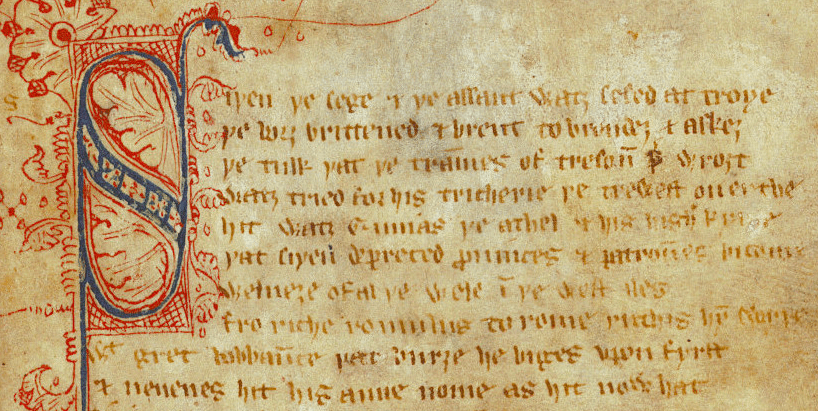 Siþen þe sege & þe assaut watz sesed at troye
þe borȝ brittened & brent to brondeȝ & askez
þe tulk þat þe trāmes of tresoū þ̄ wroȝt
watz tried for his tricherie þe trewest on erthe
hit watz Ennias þe athel & his highe kynde
þat siþen depreced ꝓuinces & patroūes bicome
welneȝe of al þe wele ī þe west iles
fro riche romulus to rome ricchis hȳ swyþe
wᵗ gret bobbaūce þat burȝe he biges vpon fyrst
& neuenes hit his aune nome as hit now hat